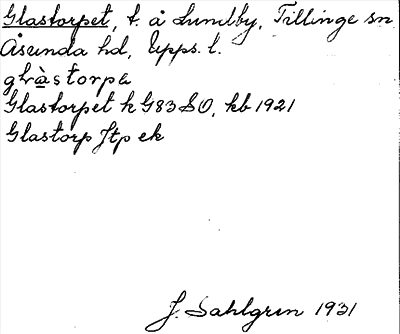 Glastorpet, t. å Lundby, Tillinge sn
Åsunda hd, Upps. l.
glàstorpe
Glastorpet k G83SO, kb 1921
Glastorp Jtp ek
J. Sahlgren 1931